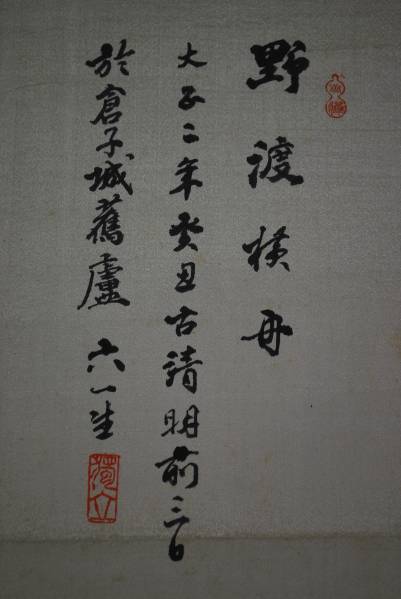 野渡橫舟
大正二年癸丑古清明前三日
於倉子城舊廬 六一生
獨立